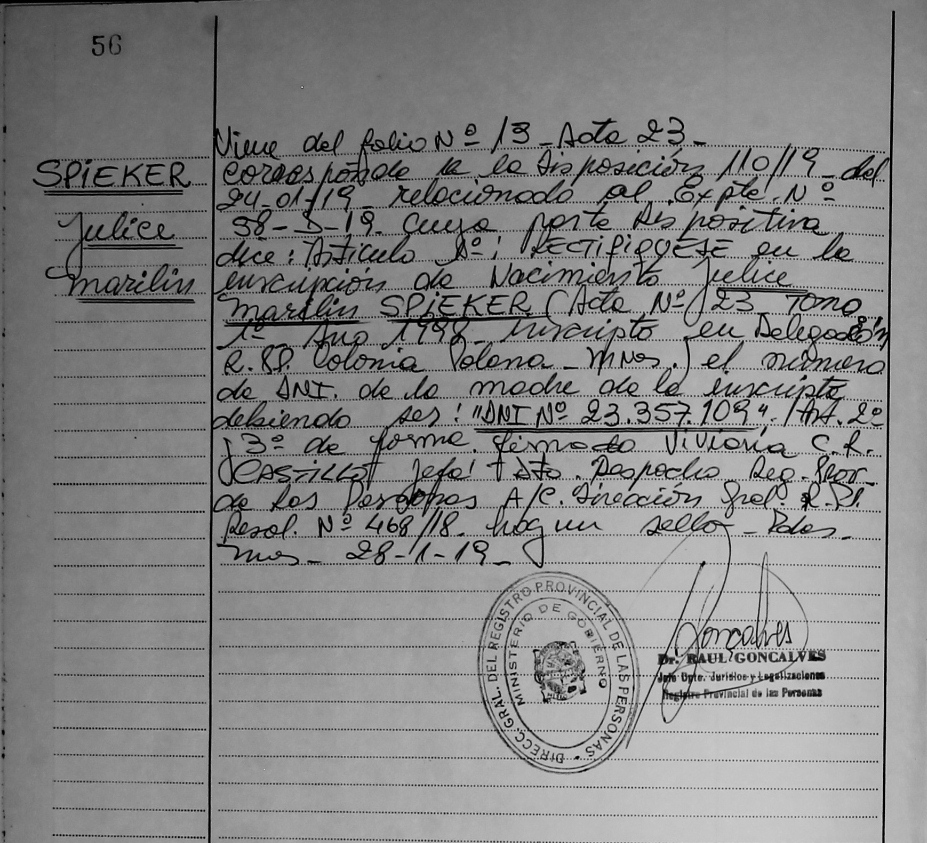 56
SPIEKER
Julice
Marilin
Viene del folio Nº 13 - Acta 23 -
Corresponde a la Disposición 110/19 - del
24-01-19 - relacionado al Expte. Nº
38-S-19. Cuya parte dispositiva
dice: Artículo 1º: RECTIFIQUESE en la
inscripción de Nacimiento Julice
Marilin SPIEKER (Acta Nº 23 Tomo
1º - Año 1998 - inscripto en Delegación
R.PP. Colonia Polana - Mnes.) el número
de DNI. de la madre de la inscripta
debiendo ser: "DNI Nº 23.357.109". Art. 2º
y 3º de forma. Firmado Viviana C.R.
CASTILLO Jefa Dto. Despacho Reg. Prov.
de Las Personas A/C. Dirección Gral. R.P.P.
Resol. Nº 468/18. hay un sello - Pdas.
Mnes - 28-1-19 -
DIRECC. GRAL. DEL REGISTRO PROVINCIAL DE LAS PERSONAS
MINISTERIO DE GOBIERNO
Goncalves
Dr. RAUL GONCALVES
Jefe Dpto. Jurídico y Legalizaciones
Registro Provincial de las Personas